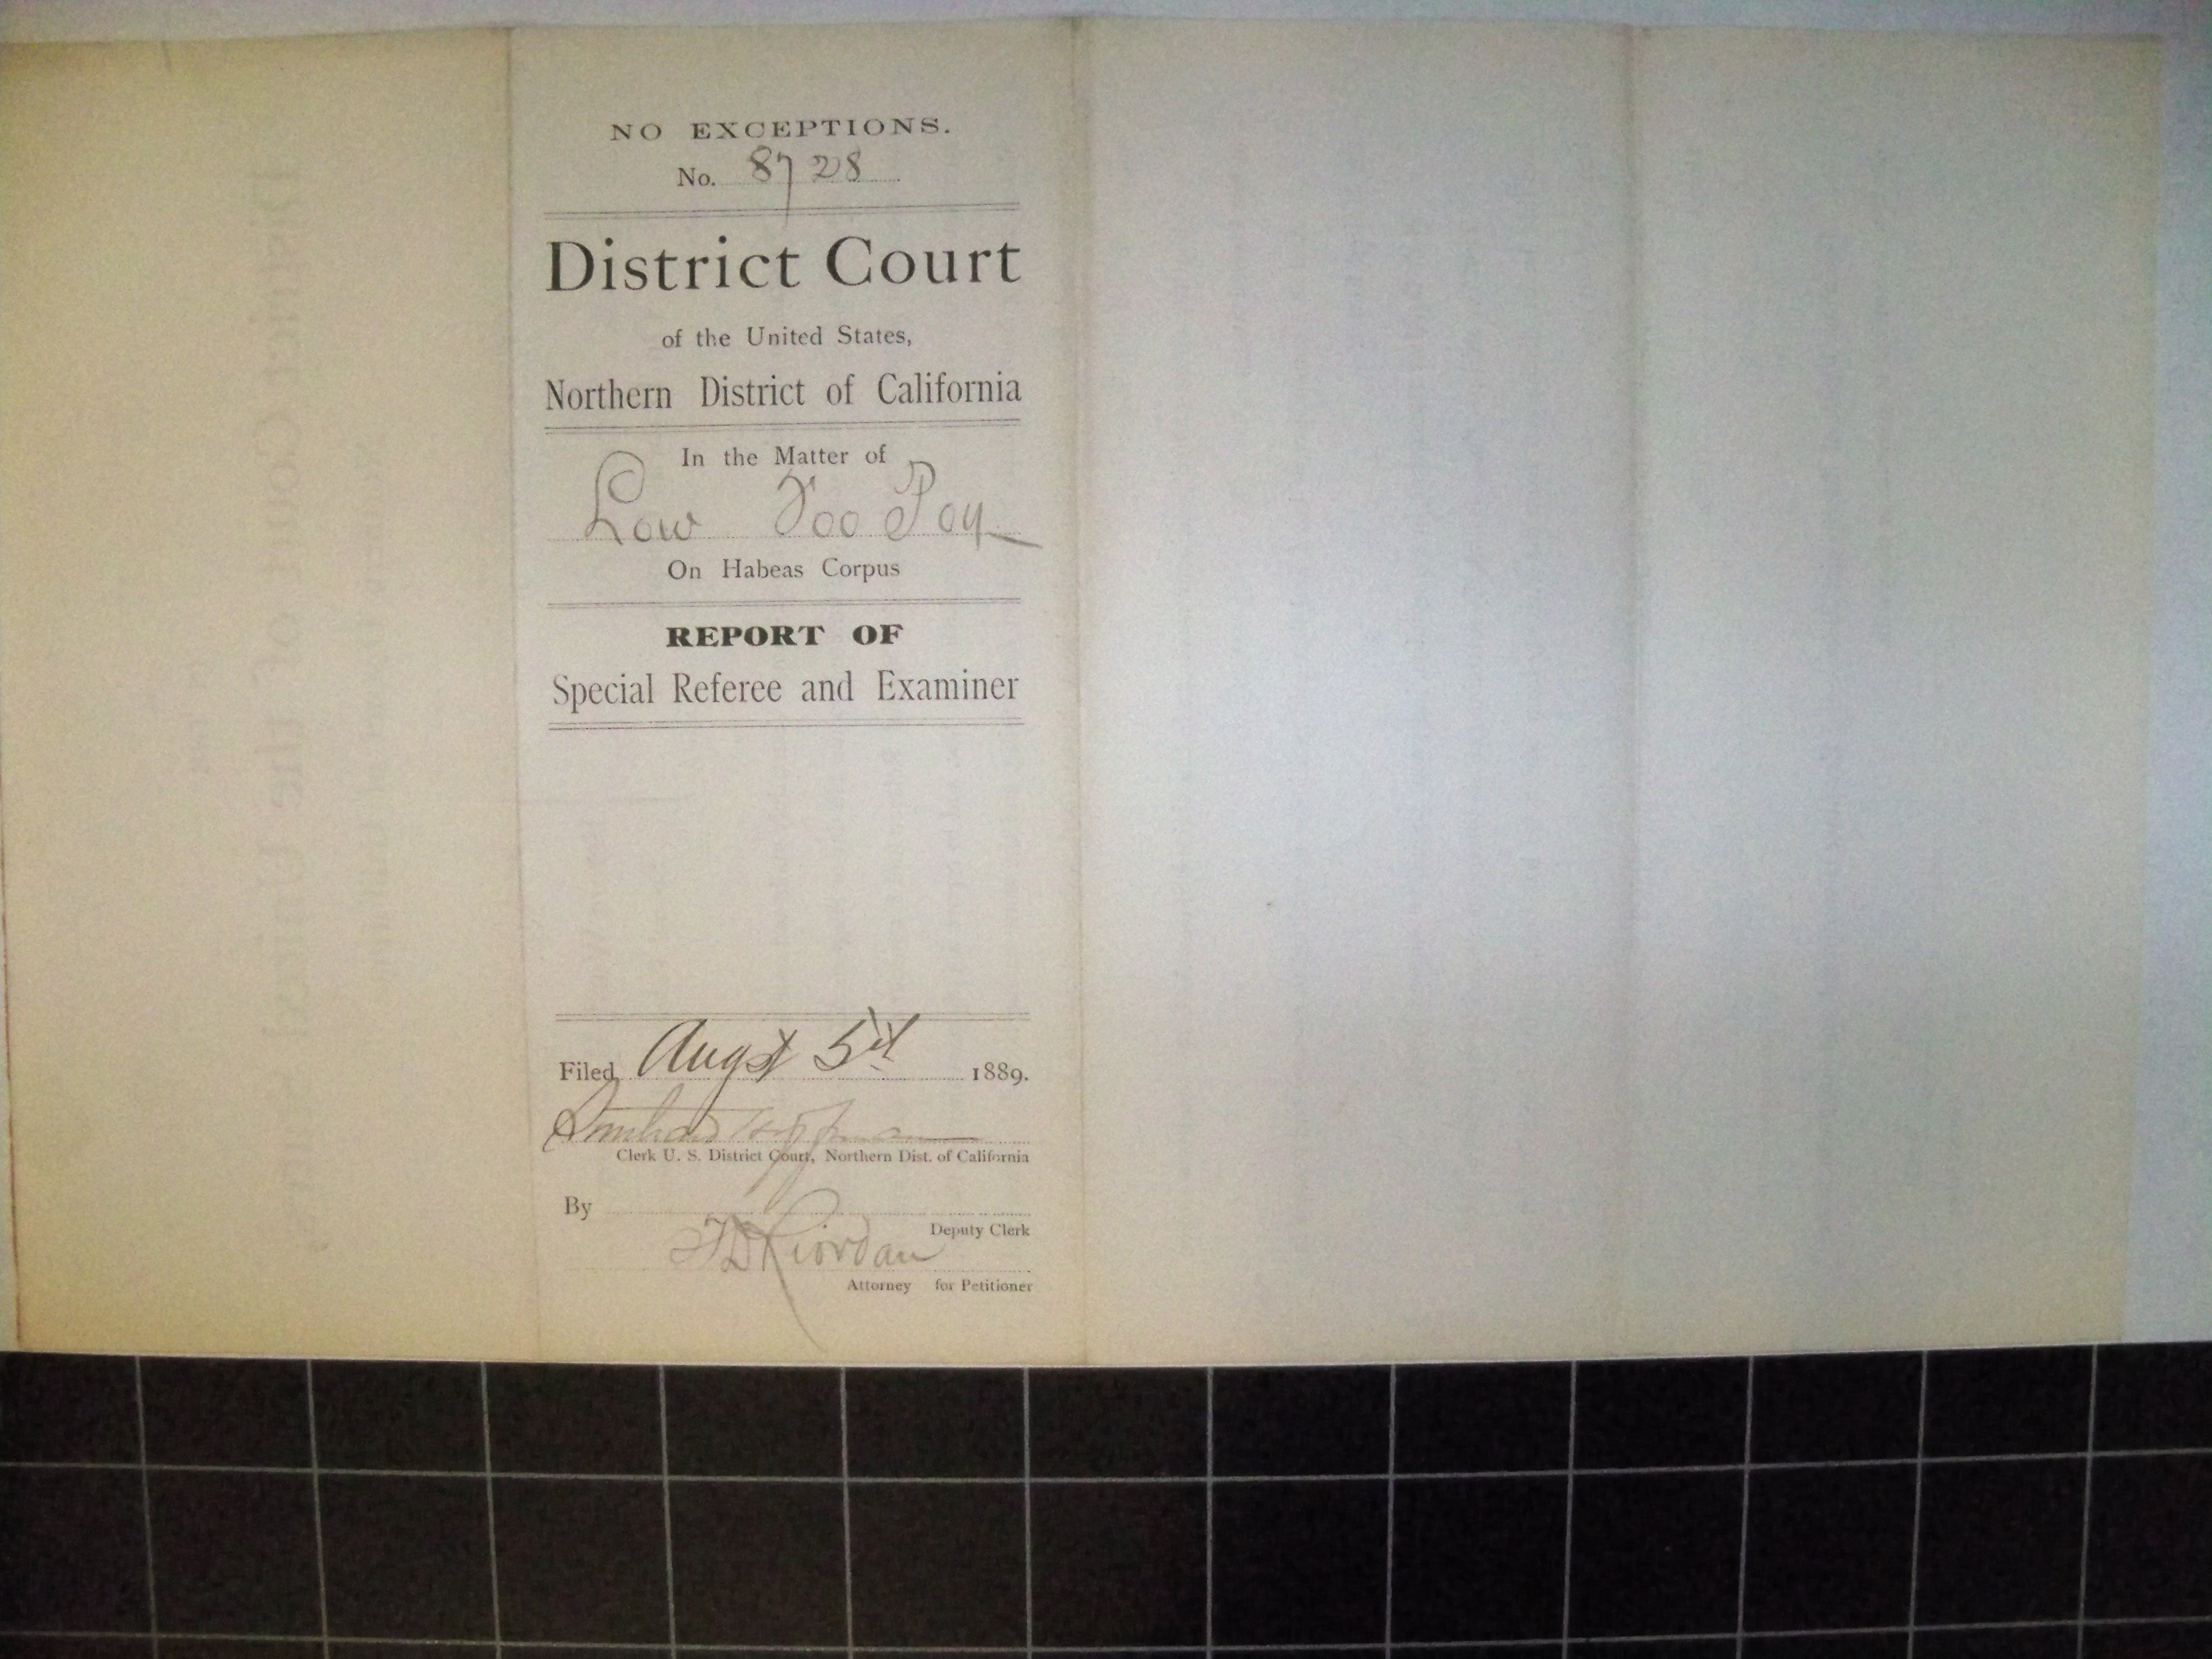 NO EXCEPTIONS.
No. 8728
District Court
of the United States,
Northern District of California
In the Matter of
Low Foo Poy
On Habeas Corpus
REPORT OF
Special Referee and Examiner
Filed Augst 5th 1889.
Clerk U. S. District Court, Northern Dist. of California
By
Deputy Clerk
T D Riordan
Attorney for Petitioner